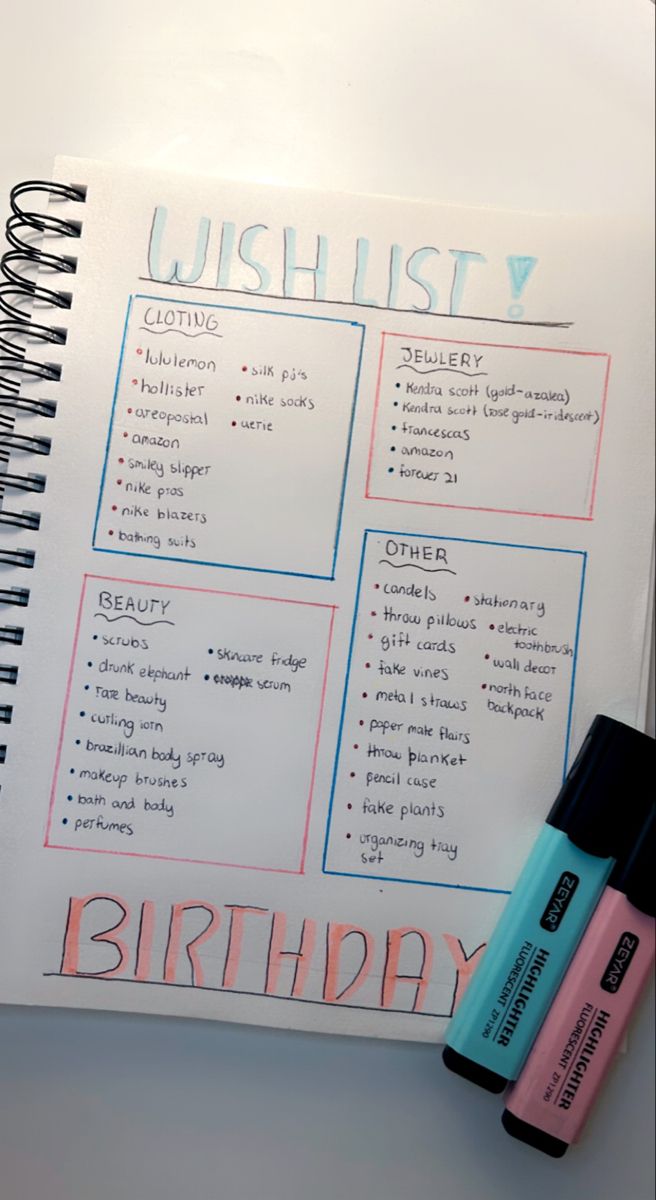 WISH LIST !
CLOTING
• lululemon
• hollister
• areopostal
• amazon
• smiley slipper
• nike pros
• nike blazers
• bathing suits
• silk pj's
• nike socks
• aerie
JEWLERY
• Kendra scott (gold-azalea)
• Kendra scott (rose gold-iridescent)
• francescas
• amazon
• forever 21
BEAUTY
• scrubs
• drunk elephant
• rare beauty
• curling iorn
• brazillian body spray
• makeup brushes
• bath and body
• perfumes
• skincare fridge
• serum
OTHER
• candels
• throw pillows
• gift cards
• fake vines
• metal straws
• paper mate flairs
• throw blanket
• pencil case
• fake plants
• organizing tray
set
• stationary
• electric
toothbrush
• wall decor
• north face
backpack
BIRTHDAY
ZEYAR®
HIGHLIGHTER
FLUORESCENT ZP1290
ZEYAR®
HIGHLIGHTER
FLUORESCENT ZP1290